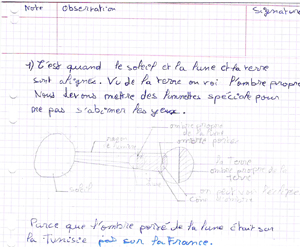 Note Observation Signature
1) C'est quand le soleil et la lune et la terre
sont alignée. Vu de la terre on voi l'ombre propre
Nous devons mettre des lunettes spéciale pour
ne pas s'abimer les yeux.
ombre propre
de la lune
ombre portée
la Terre
ombre propre de la
Terre
soleil
cône d'ombre
Parce que l'ombre porté de la lune était sur
la Tunisie pas sur la France.